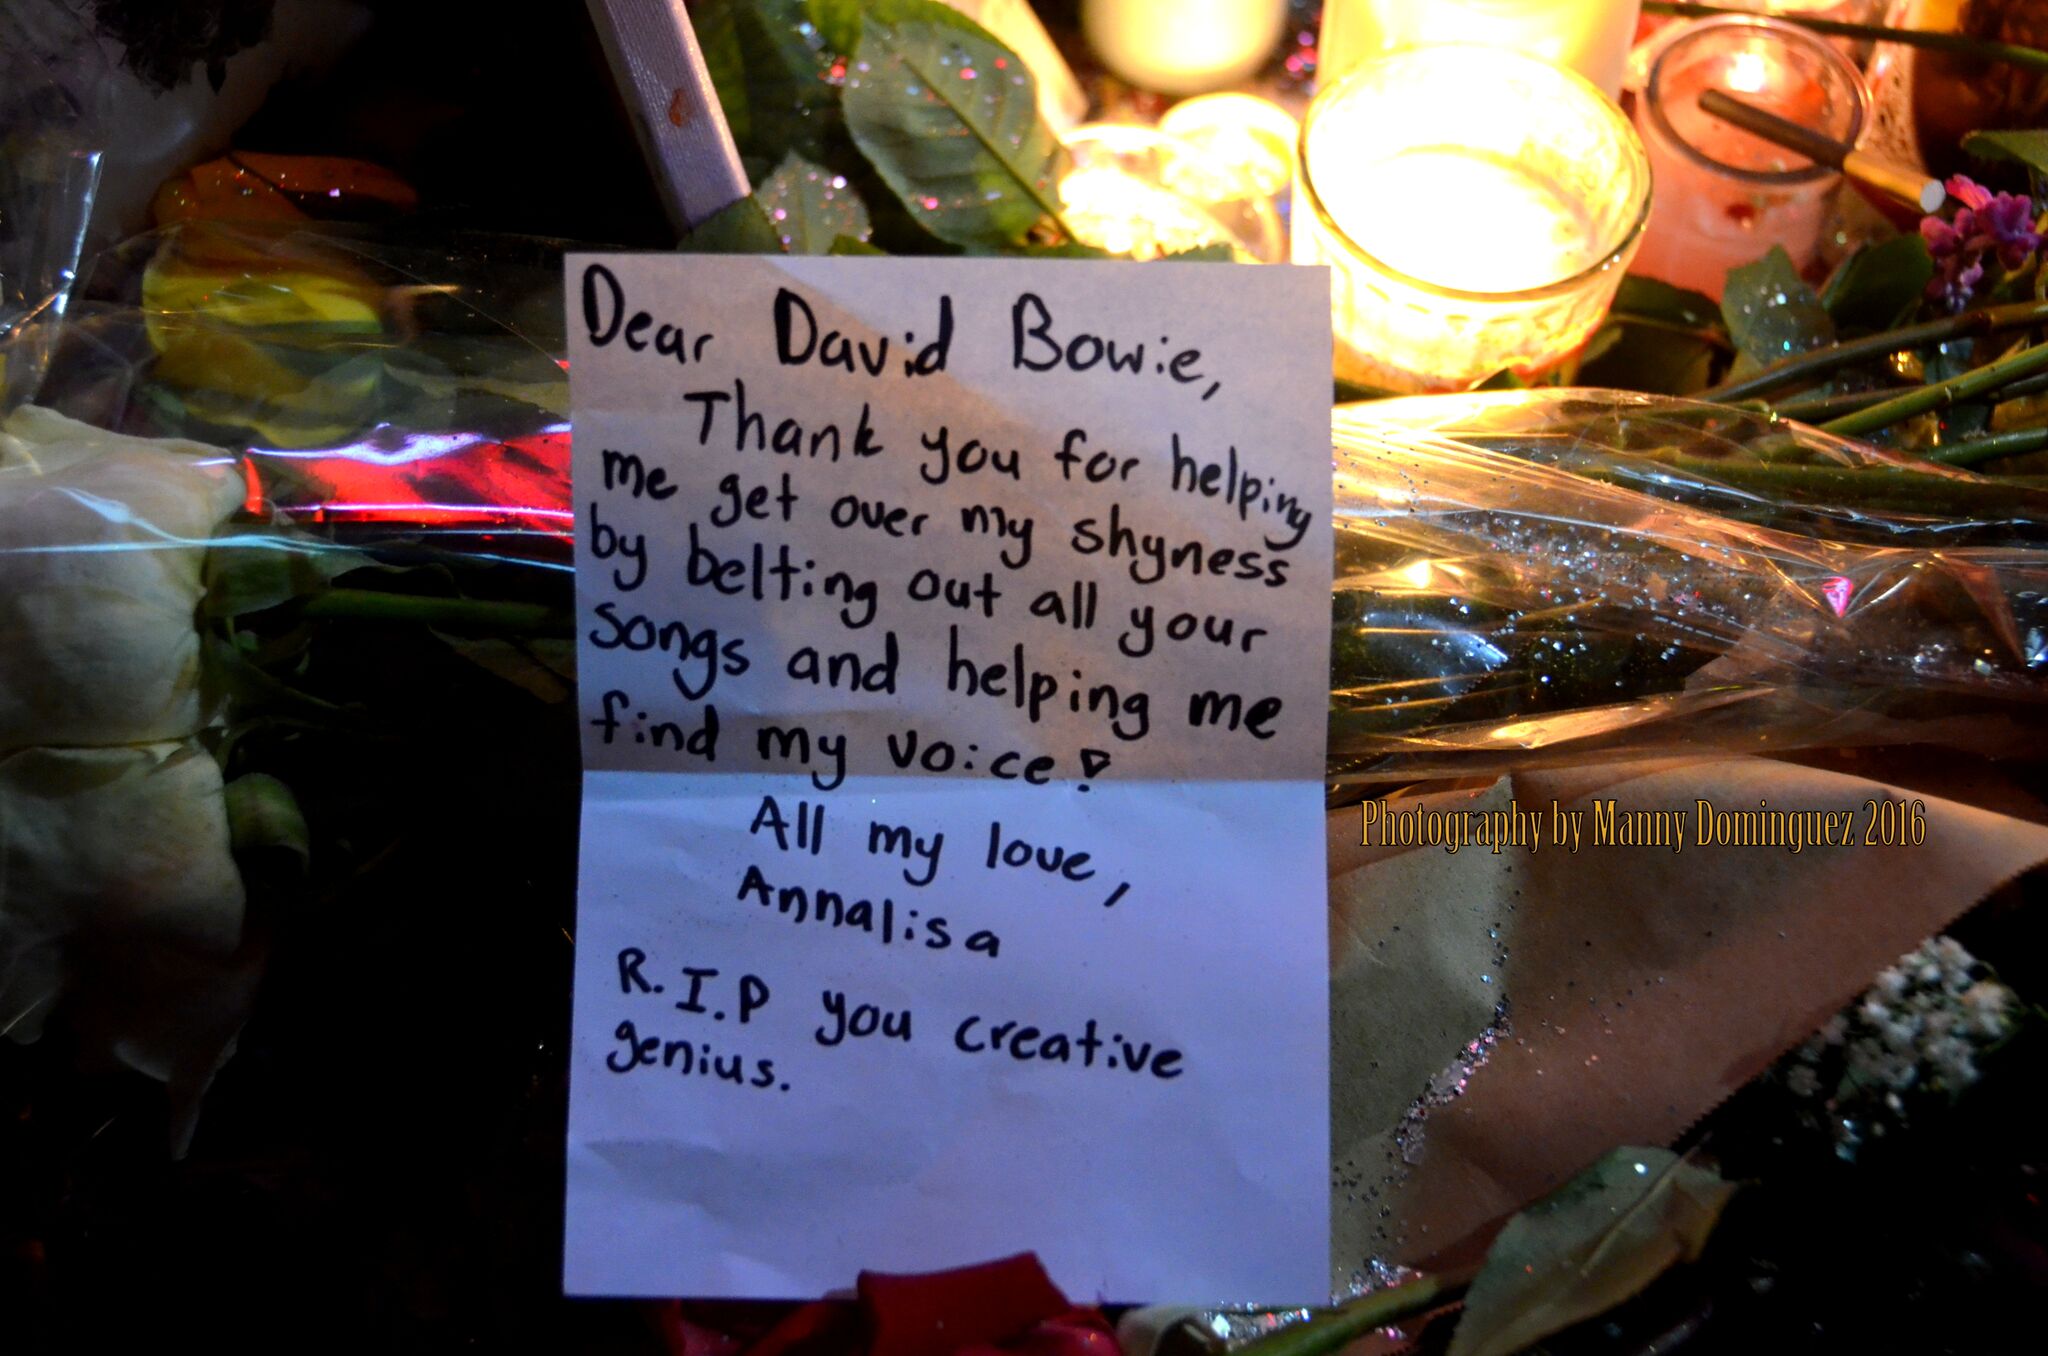 Dear David Bowie,
Thank you for helping
me get over my shyness
by belting out all your
songs and helping me
find my voice!
All my love,
Annalisa
R.I.P you creative
genius.
Photography by Manny Dominguez 2016